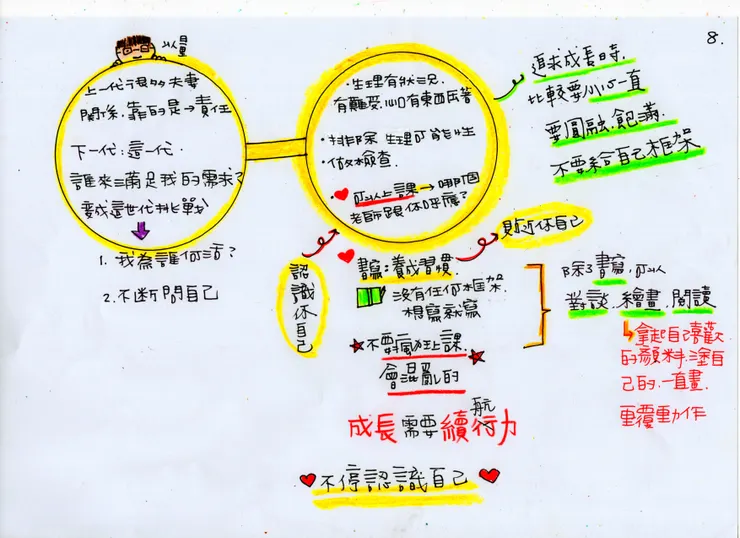 8.
力量
上一代很多夫妻
關係,靠的是→責任
下一代:這一代.
誰來滿足我的需求?
變成這世代挑戰
1. 我為誰何活?
2. 不斷問自己
·生理有狀況.
有難受,心口有東西压著
·排除生理可能性
·做檢查.
·可以上課→哪個
老師跟你呼應?
追求成長時.
比較要小心一直
要圓融.飽滿.
不要給自己框架
認識你自己
貼近你自己
書寫:養成習慣.
沒有任何框架.
想寫就寫
不要瘋狂上課.
會混亂的
除了書寫,可以
對談.繪畫.閱讀
↳拿起自己喜歡
的顏料.塗自
己的.一直畫.
重覆動作
成長需要續航行力
不停認識自己